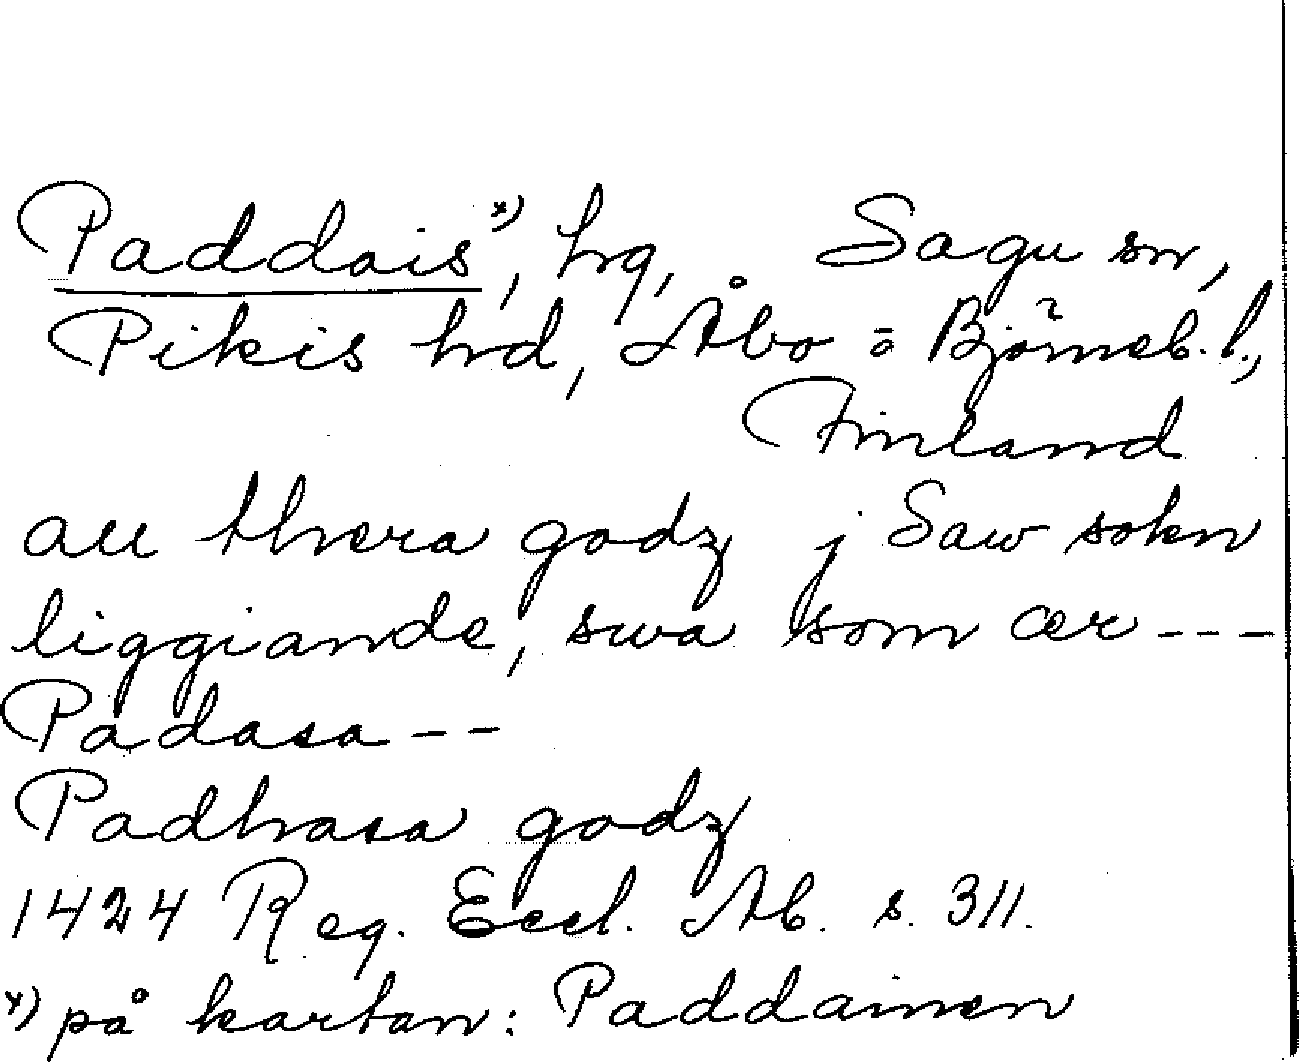 Paddais *), hg, Sagu sn,
Pikis hd, Åbo = Björneb. l.,
Finland
all thera godz j Saw sokn
liggiande, swa som ær ---
Padasa --
Padhasa godz
1424 Reg. Eccl. Ab. s. 311.
*) på kartan: Paddainen